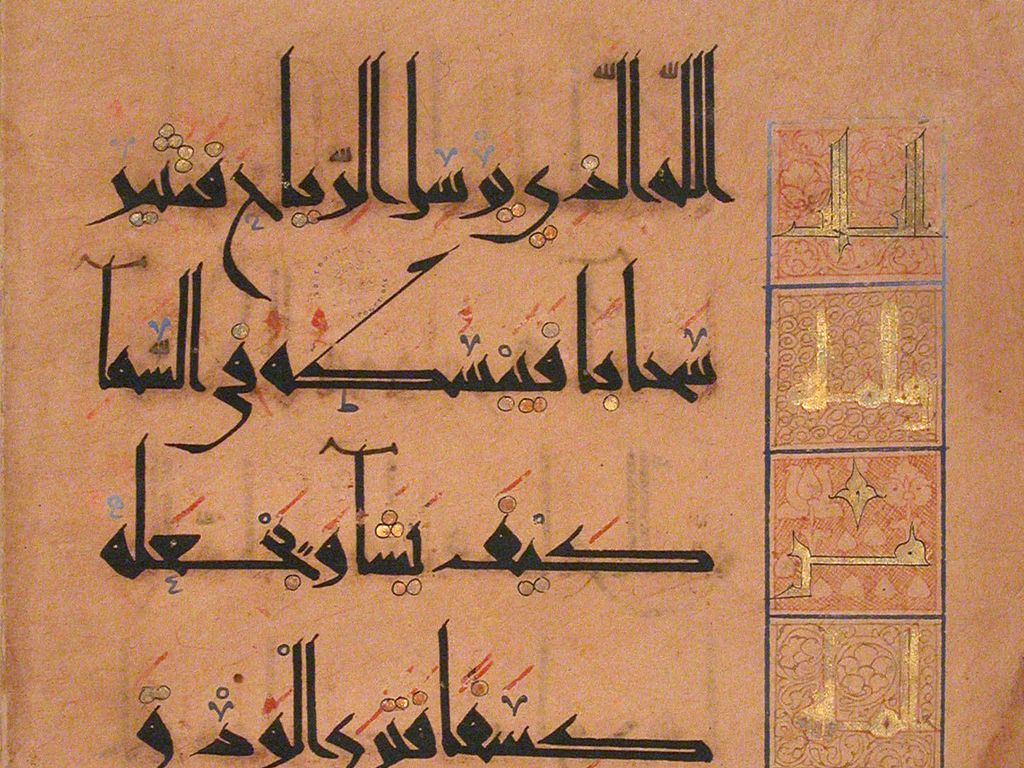 الله الذي يرسل الرياح فتثير
سحابا فيبسطه في السما
كيف يشا ويجعله
كسفا فترى الودق